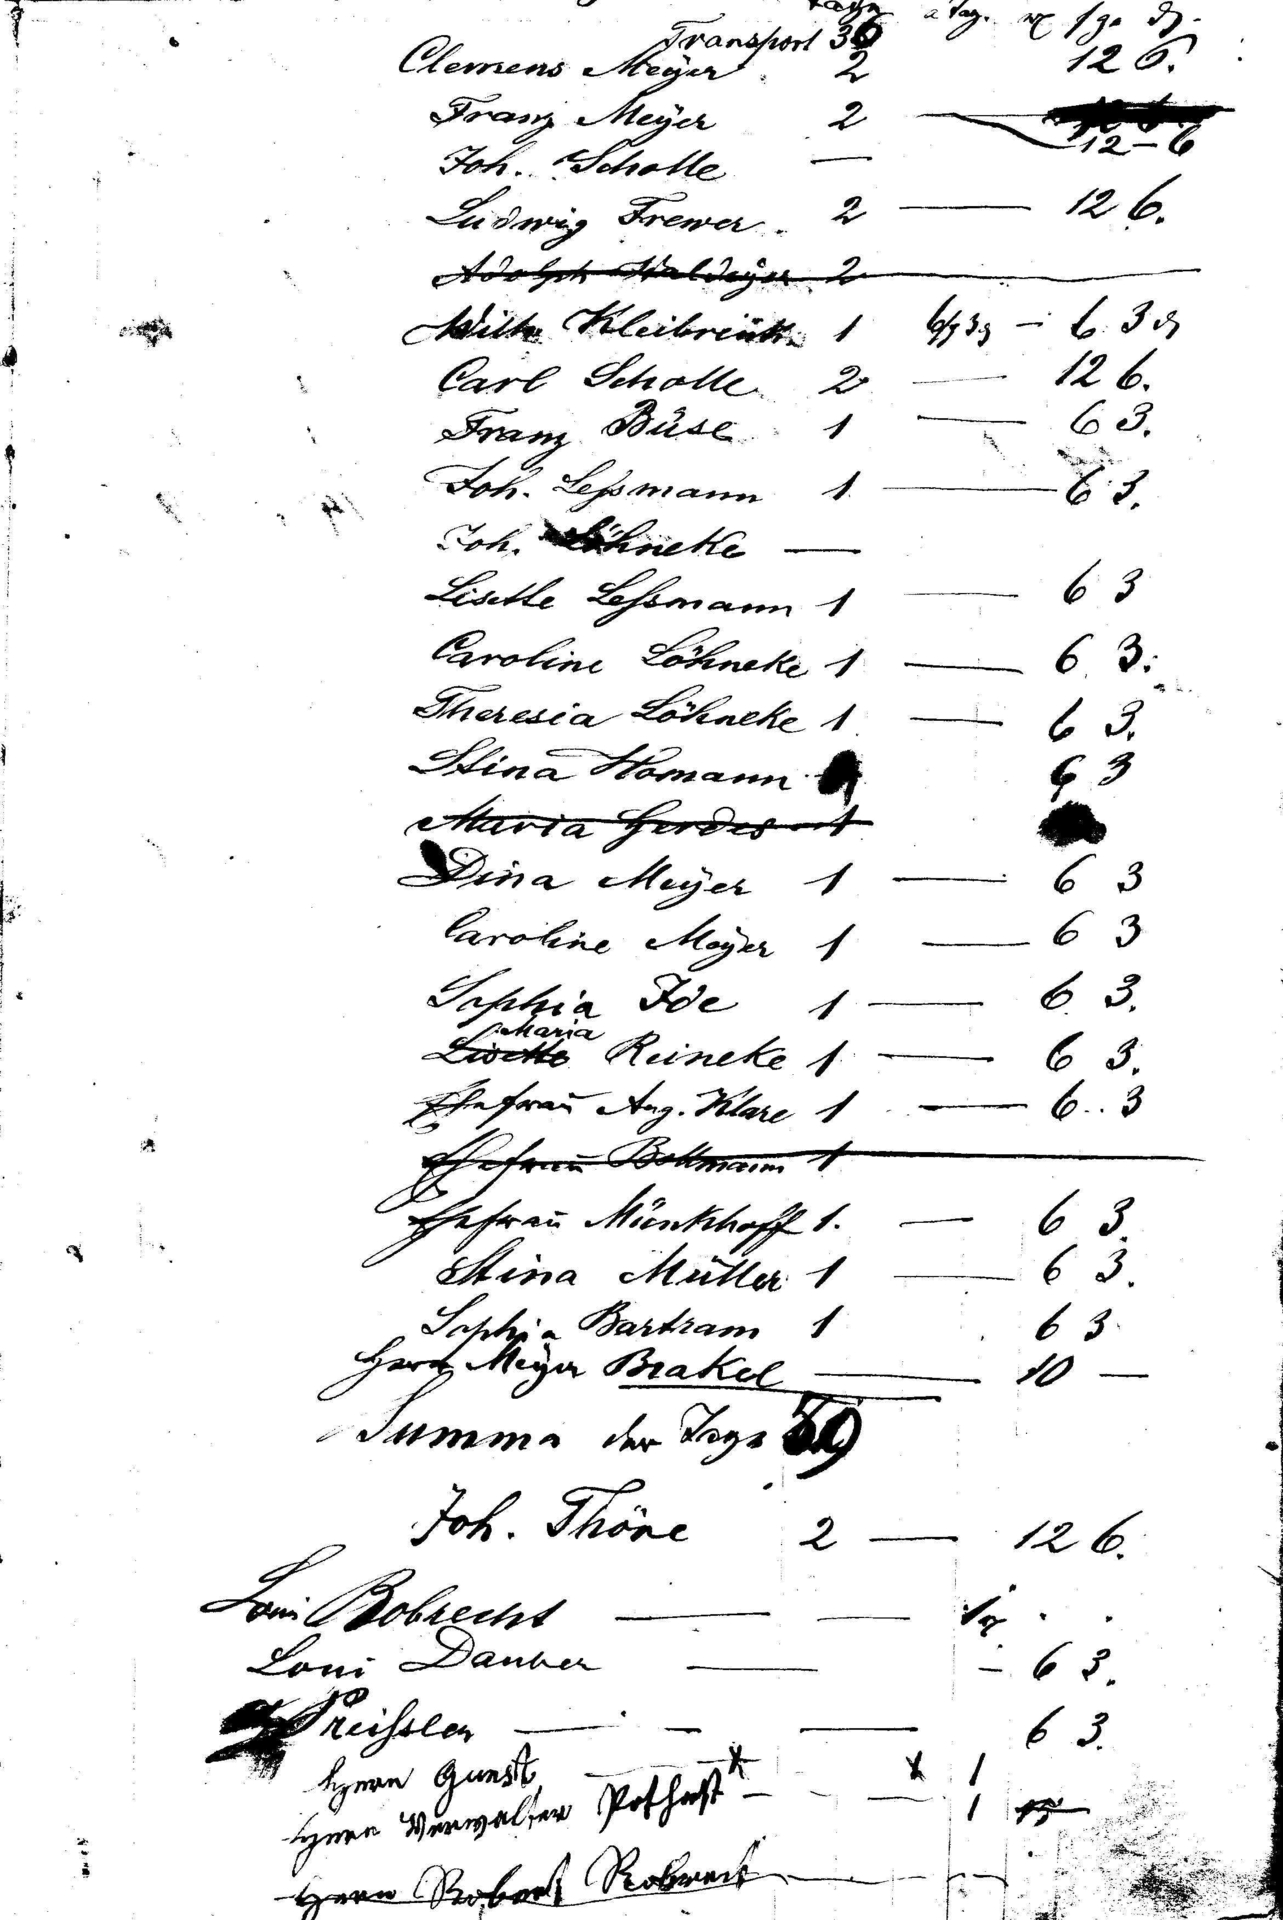 Tage à Tag.
Transport 36
Clemens Meÿer 2 12 6.
Franz Meÿer 2 — 12 - 6
Joh. Scholle —
Ludwig Frewer 2 — 12 6.
Adolph Waldeÿer 2
Wilh. Kleibrink 1 — 6 3
Carl Scholle 2 — 12 6.
Franz Büse 1 — 6 3.
Joh. Leßmann 1 — 6 3.
Joh. Löhneke —
Lisette Leßmann 1 — 6 3
Caroline Löhneke 1 — 6 3.
Theresia Löhneke 1 — 6 3.
Stina Homann 6 3
Maria Gerdes 1
Dina Meÿer 1 — 6 3
Caroline Meÿer 1 — 6 3
Sophia Ide 1 — 6 3.
Maria
Lisette Reineke 1 — 6 3.
Ehefrau Aug. Klare 1 — 6 3
Ehefrau Boltmann 1
Ehefrau Münkhoff 1. — 6 3.
Stina Müller 1 — 6 3.
Sophia Bartram 1 6 3
Herr Meÿer Brakel — 10 —
Summa der Tage 59
Joh. Thöne 2 — 12 6.
Loui Bobrecht — —
Loui Dauber — - 6 3.
Preissler — - — 6 3.
Herrn 1
Herrn Verwalter Pothast - 1 15
Herrn Robert